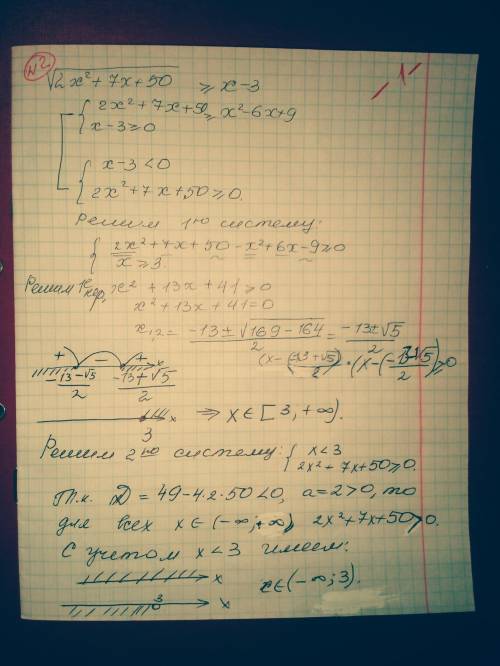 №2
√2x² + 7x + 50 ≥ x - 3
-1-
{ 2x² + 7x + 50 ≥ x² - 6x + 9
x - 3 ≥ 0
{ x - 3 < 0
2x² + 7x + 50 ≥ 0.
Решим 1-ю систему:
{ 2x² + 7x + 50 - x² + 6x - 9 ≥ 0
x ≥ 3.
Решим 1е нер, x² + 13x + 41 ≥ 0
x² + 13x + 41 = 0
x₁,₂ = (-13 ± √169 - 164)/2 = (-13 ± √5)/2
(x - (-13 + √5)/2) · (x - (-13 - √5)/2) ≥ 0
+ - + x
(-13 - √5)/2 (-13 + √5)/2
3 x ⇒ x ∈ [3, +∞).
Решим 2ю систему: { x < 3
2x² + 7x + 50 ≥ 0.
Т.к. D = 49 - 4·2·50 < 0, a = 2 > 0, то
для всех x ∈ (-∞; +∞), 2x² + 7x + 50 > 0.
С учетом x < 3 имеем:
x
3 x x ∈ (-∞; 3).